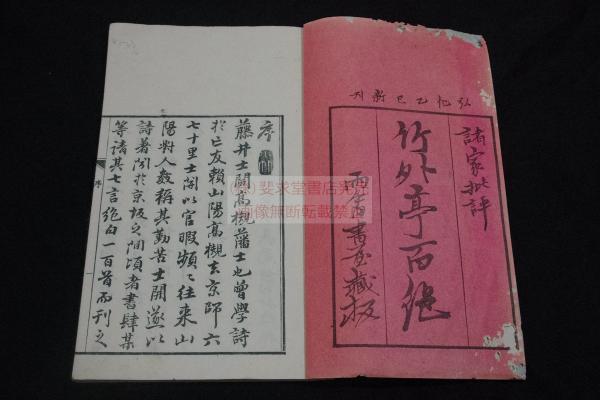 弘化乙巳新刻
諸家批評
竹外亭百絶
雨香書屋藏板
序
藤井士開高槻藩士也曾學詩
於亡友賴山陽高槻去京師六
七十里士開以官暇頻々往來山
陽對人數稱其勤苦士開遂以
詩著聞於京坂之間頃者書肆某
等請其七言絶句一百首而刊之
序
(株)斐求堂書店来薫
画像無断転載禁止